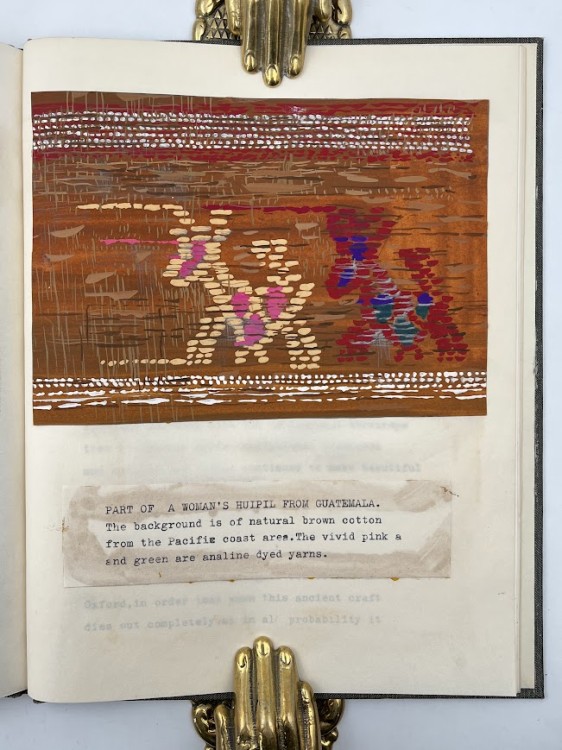 PART OF A WOMAN'S HUIPIL FROM GUATEMALA.
The background is of natural brown cotton
from the Pacific coast area.The vivid pink a
and green are analine dyed yarns.
Oxford,in order this ancient craft
dies out completely in probability it